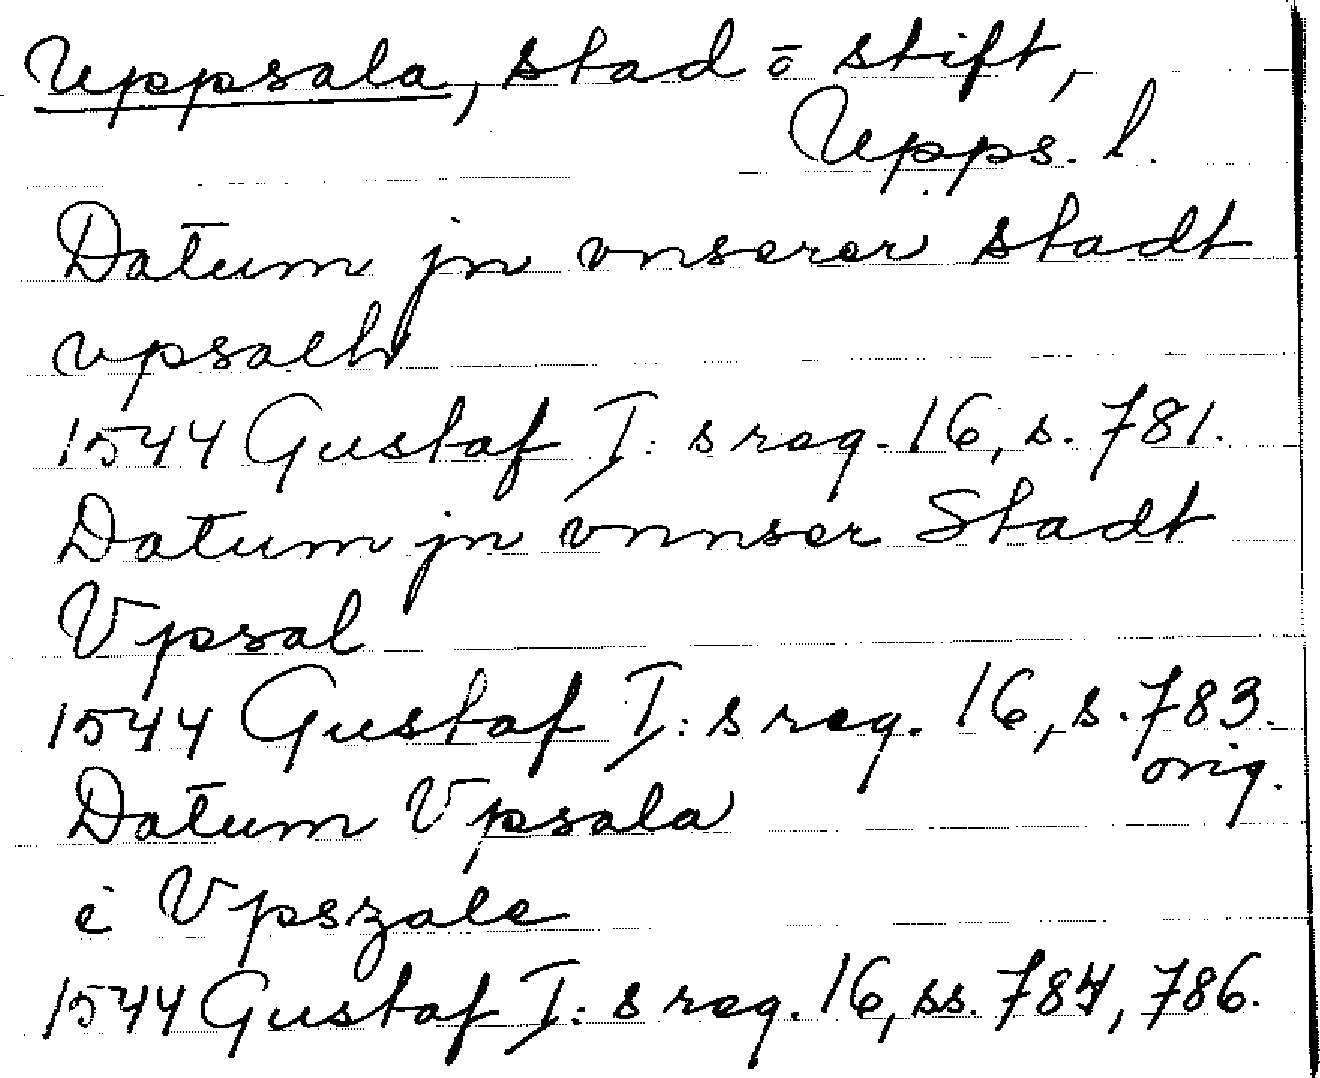 Uppsala, stad o stift,
Upps. l.
Datum jn vnserer stadt
vpsalh
1544 Gustaf I:s reg. 16, s. 781.
Datum jn vnnser Stadt
Vpsal
1544 Gustaf I:s reg. 16, s. 783.
orig.
Datum Vpsala
i Vpszale
1544 Gustaf I:s reg. 16, ss. 784, 786.